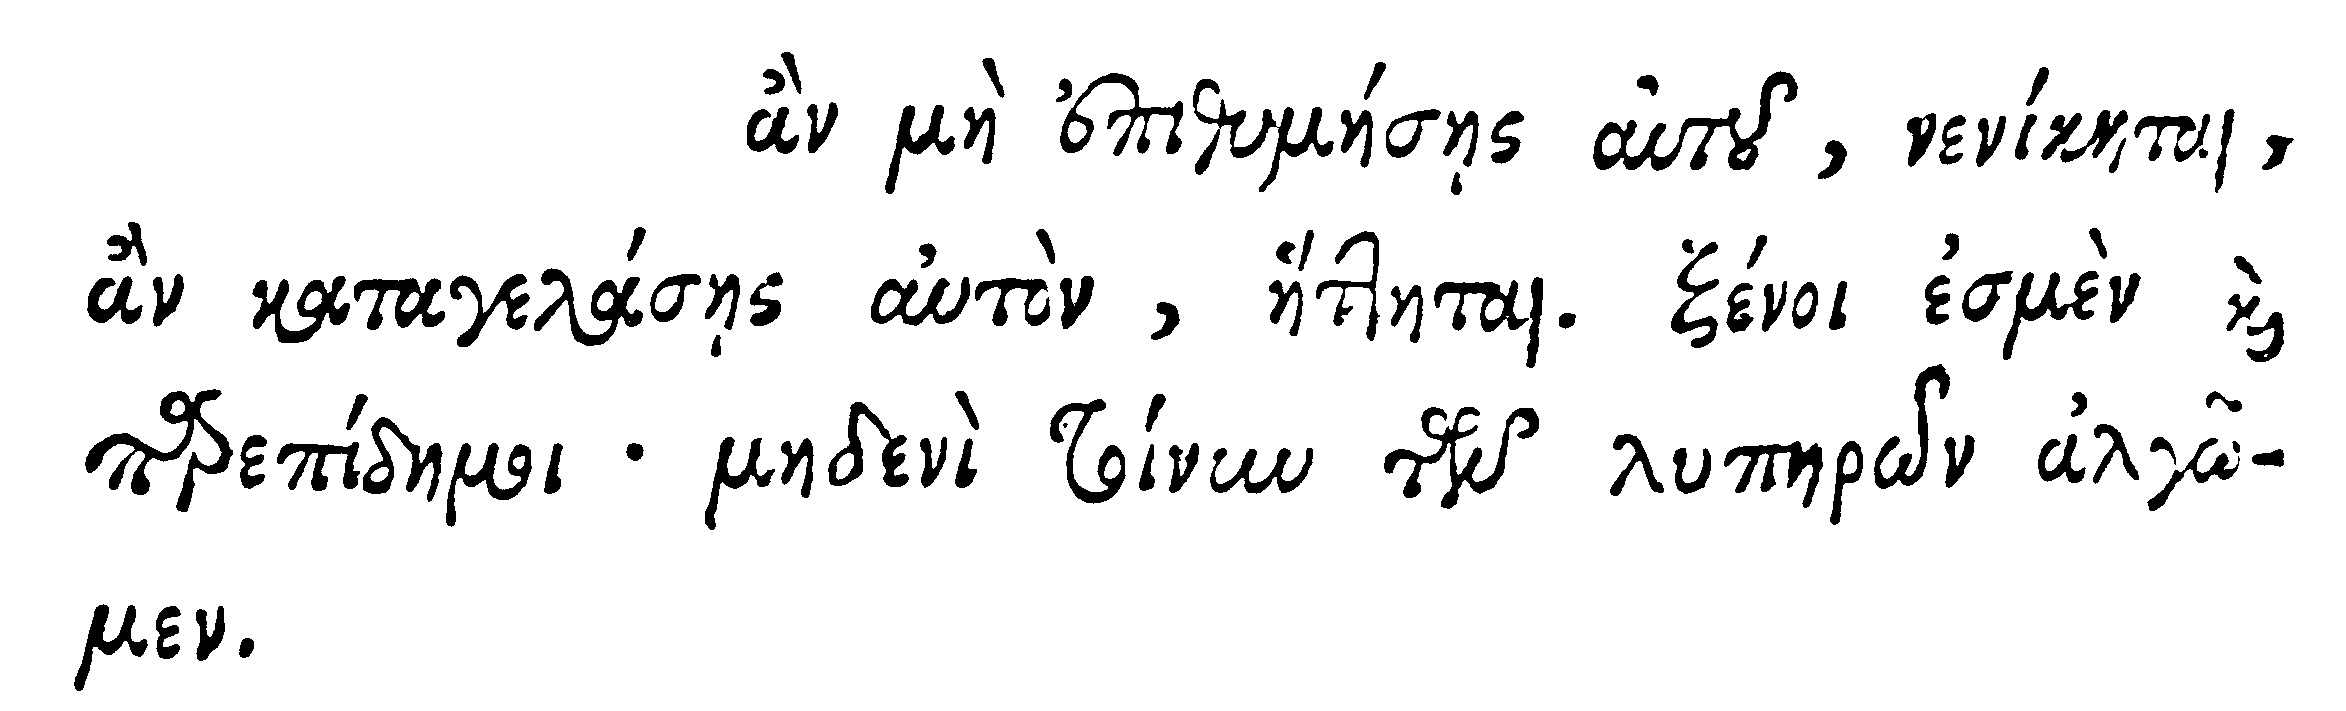 ἂν μὴ ἐπιθυμήσῃς αὐτοῦ, νενίκηται,
ἂν καταγελάσῃς αὐτὸν, ἥττηται. ξένοι ἐσμὲν καὶ
παρεπίδημοι· μηδενὶ τοίνυν τῶν λυπηρῶν ἀλγῶ-
μεν.